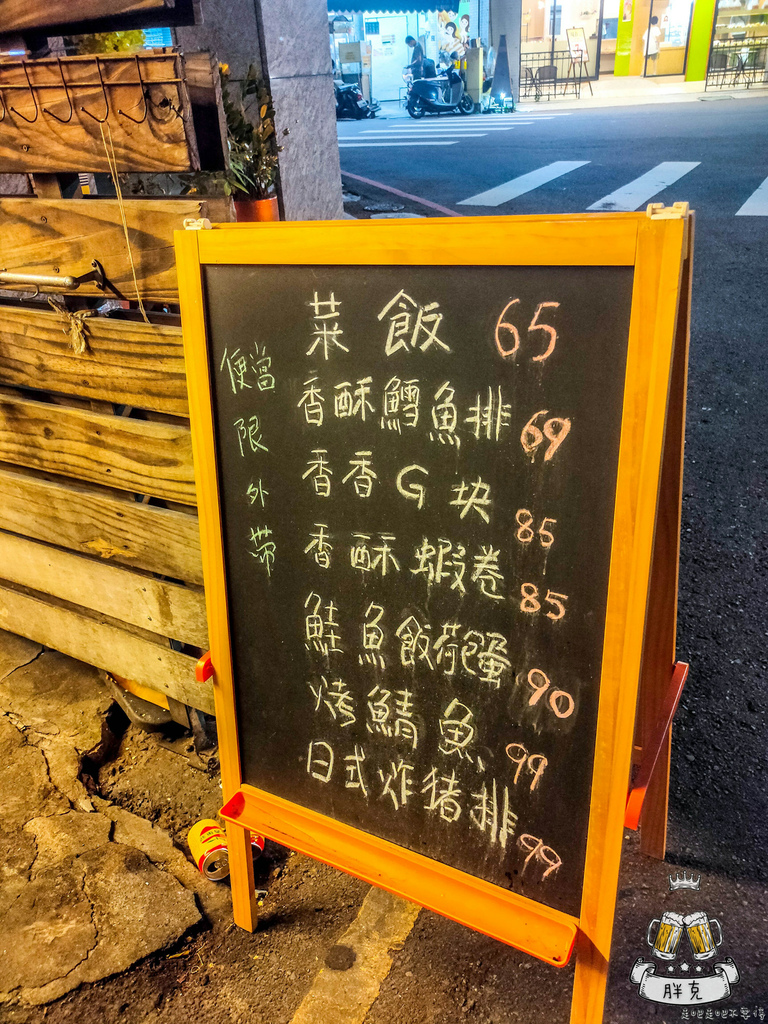 菜飯 65
香酥鱈魚排 69
香香G块 85
香酥蝦卷 85
鮭魚飯荷包蛋 90
烤鯖魚 99
日式炸猪排 99
便當限外帶
胖克
走吧走吧不要擋